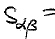 S_{αβ} =